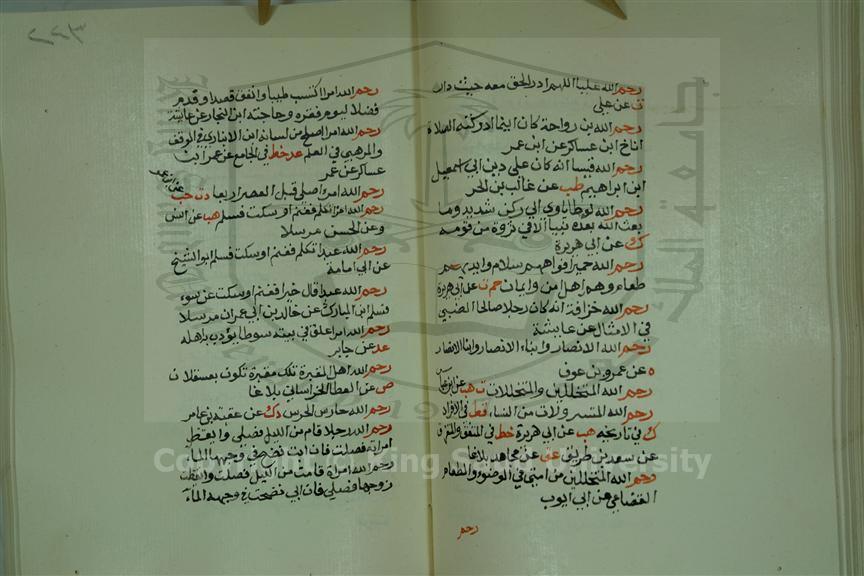 رحم الله عليا اللهم ادر الحق معه حيث دار
ت عن علي
رحم الله بن رواحة كان اينما ادركته الصلاة
اناخ ابن عساكر عن ابن عمر
رحم الله قسا انه كان علي دين ابي اسمعيل
ابن ابراهيم طب عن غالب بن الحر
رحم الله لوطا ياوي الي ركن شديد وما
بعث الله بعده نبيا الا في ثروة من قومه
ك عن ابي هريرة
رحم الله حميرا افواههم سلام وايديهم
طعام وهم اهل امن وايمان حم ت عن ابي هريرة
رحم الله خرافة انه كان رجلا صالحا الضبي
في الامثال عن عايشة
رحم الله الانصار وابناء الانصار وابنا الانصار
ه عن عمرو بن عوف
رحم الله المتخللين والمتخللات هب عن ابن عباس
رحم الله المتسرولات من النساء قط في الافراد
ك في تاريخه هب عن ابي هريرة خط في المتفق والمفترق
عن سعد بن طريق عق عن مجاهد بلاغا
رحم الله المتخللين من امتي في الوضوء والطعام
القضاعي عن ابي ايوب
رحم
٢٢٣
رحم الله امرا اكتسب طيبا وانفق قصدا وقدم
فضلا ليوم فقره وحاجته ابن النجار عن عايشة
رحم الله امرا اصلح من لسانه ابن الانباري في الوقف
والمرهبي في العلم عد خط في الجامع عن عمر ابن
عساكر عن عمر
رحم الله امرءا صلي قبل العصر اربعا د ت حب
عن ابن عمر
رحم الله امرا تكلم فغنم او سكت فسلم هب عن انس
وعن الحسن مرسلا
رحم الله عبدا تكلم فغنم او سكت فسلم ابو الشيخ
عن ابي امامة
رحم الله عبدا قال خيرا فغنم او سكت عن سوء
فسلم ابن المبارك عن خالد بن ابي عمران مرسلا
رحم الله امرا علق في بيته سوطا يؤدب به اهله
عد عن جابر
رحم الله اهل المقبرة تلك مقبرة تكون بعسقلان
ص عن العطا الخراساني بلاغا
رحم الله حارس الحرس ه ك عن عقبة بن عامر
رحم الله رجلا قام من الليل فصلي وايقظ
امراته فصلت فان ابت نضح في وجهها الماء
رحم الله امراة قامت من الليل فصلت وايقظت
زوجها فصلي فان ابي نضحت في وجهه الماء
Copyright © King Saud University
جامعة الملك سعود
1957